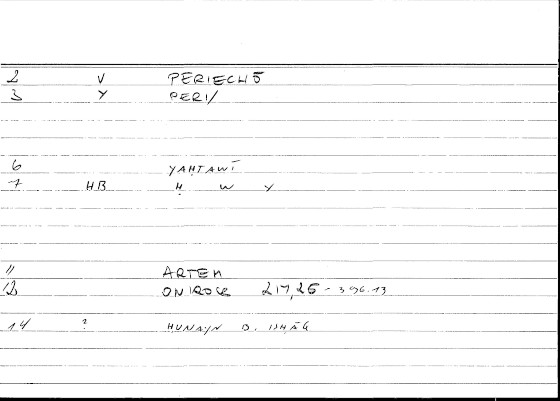 2 V PERIECHŌ
3 Y PERI/
6 YAḤTAWĪ
7 HB Ḥ W Y
11 ARTEM
12 ONIROCR 217,25 - 396.13
14 ? ḤUNAYN B. ISḤĀQ